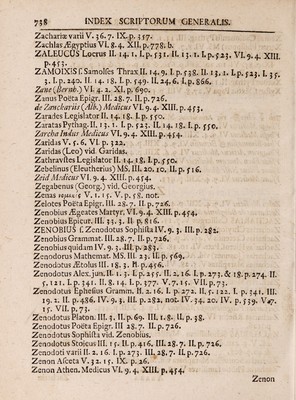 738 INDEX SCRIPTORUM GENERALIS.
Zachariæ varii V. 36. 7. IX. p. 357.
Zachlas Ægyptius VI. 8. 4. XII. p. 778. b.
ZALEUCUS Locrus II. 14. 1. I. p. 531. II. 13. 1. I. p. 523. VI. 9. 4. XIII.
p. 453.
ZAMOLXIS f. Samolses Thrax II. 14. 9. I. p. 538. II. 13. 2. I. p. 523. I. 35.
3. I. p. 240. II. 14. 18. I. p. 549. II. 24. 6. I. p. 866.
Zane (Bernh.) VI. 4. 2. XI. p. 690.
Zanus Poëta Epigr. III. 28. 7. II. p. 726.
de Zanchariis (Alb.) Medicus VI. 9. 4. XIII. p. 453.
Zarades Legislator II. 14. 18. I. p. 550.
Zaratas Pythag. II. 13. 1. I. p. 523. II. 14. 18. I. p. 550.
Zarcha Indus Medicus VI. 9. 4. XIII. p. 454.
Zaridas V. 5. 6. VI. p. 322.
Zaridas (Leo) vid. Garidas.
Zathraustes Legislator II. 14. 18. I. p. 550.
Zebelinus (Eleutherius) MS. III. 20. 10. II. p. 516.
Zeid Medicus VI. 9. 4. XIII. p. 454.
Zegabenus (Georg.) vid. Georgius.
Zenas V. 1. 15. V. p. 58. not.
Zelotes Poëta Epigr. III. 28. 7. II. p. 726.
Zenobius Ægeates Martyr. VI. 9. 4. XIII. p. 454.
Zenobius Epicur. III. 33. 3. II. p. 816.
ZENOBIUS f. Zenodotus Sophista IV. 9. 3. III. p. 282.
Zenobius Grammat. III. 28. 7. II. p. 726.
Zenobius quidam IV. 9. 3. III. p. 283.
Zenodorus Mathemat. MS. III. 23. II. p. 569.
Zenodotus Ætolus III. 18. 3. II. p. 456.
Zenodotus Alex. jun. II. 1. 3. I. p. 255. II. 2. 16. I. p. 273. & 18. p. 274. II.
5. 121. I. p. 341. II. 8. 14. I. p. 377. V. 7. 15. VII. p. 73.
Zenodotus Ephesius Gramm. II. 2. 16. I. p. 272. II. 5. 122. I. p. 341. III.
19. 2. II. p. 486. IV. 9. 3. III. p. 282. not. IV. 34. 20. IV. p. 539. V. 7.
15. VII. p. 73.
Zenodotus Platon. III. 3. II. p. 69. III. 1. 8. II. p. 38.
Zenodotus Poëta Epigr. III 28. 7. II. p. 726.
Zenodotus Sophista vid. Zenobius.
Zenodotus Stoicus III. 15. II. p. 416. III. 28. 7. II. p. 726.
Zenodoti varii II. 2. 16. I. p. 273. III. 28. 7. II. p. 726.
Zenon Asceta V. 32. 15. IX. p. 26.
Zenon Athen. Medicus VI. 9. 4. XIII. p. 454.
Zenon